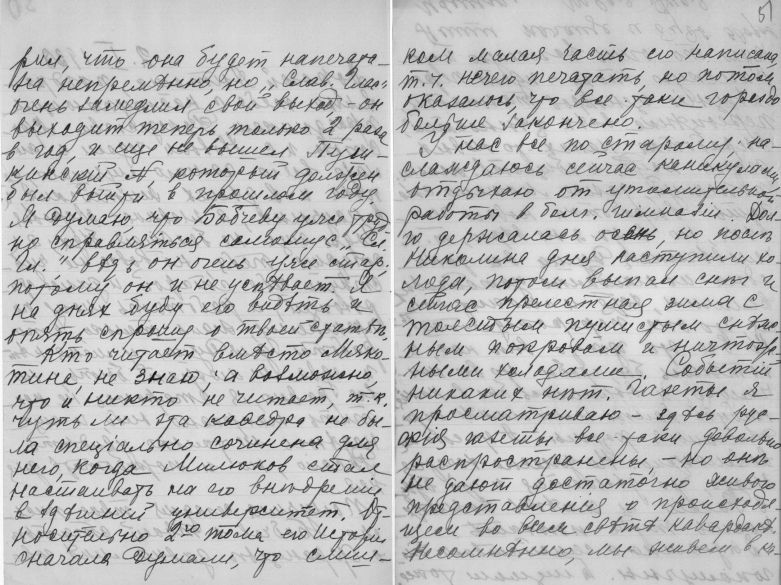 рил, что она будет напечата-
на непремѣнно, но „Слав. Глас"
очень замедлил свой выход - он
выходит теперь только 2 раза
в год, и еще не вышел Пуш-
кинский №, который должен
был выйти в прошлом году.
Я думаю, что Бобчеву уже труд
но справляться самому с „Сл.
Гл." вѣдь он очень уже стар,
потому он и не успѣвает. Я
на днях буду его видѣть и
опять спрошу о твоей статьѣ.
Кто читает вмѣсто Мяко-
тина, не знаю, а возможно,
что и никто не читает, т.к.
чуть ли эта кафедра не бы-
ла спецiально сочинена для
него, когда Милюков стал
настаивать на его внѣдренiи
в здѣшнiй университет. От
носительно 2го тома его Исторiи
сначала думали, что слиш-
5
ком малая часть его написана,
т.ч. нечего печатать, но потом
оказалось, что все-таки гораздо
больше закончено.
У нас все по старому, на-
слаждаюсь сейчас каникулами,
отдыхаю от утомительной
работы в болг. гимназiи. Дол
го держалась осень, но послѣ
Николина дня наступили хо-
лода, потом выпал снѣг и
сейчас прелестная зима с
толстым пушистым снѣж
ным покровом и ничтож
ными холодами. Событiй
никаких нѣт. Газеты я
просматриваю - здѣсь рус
скiя газеты все-таки довольно
распространены, - но онѣ
не дают достаточно живого
представления о происходя
щем во всем свѣтѣ кавардакѣ.
Несомнѣнно, мы живем в